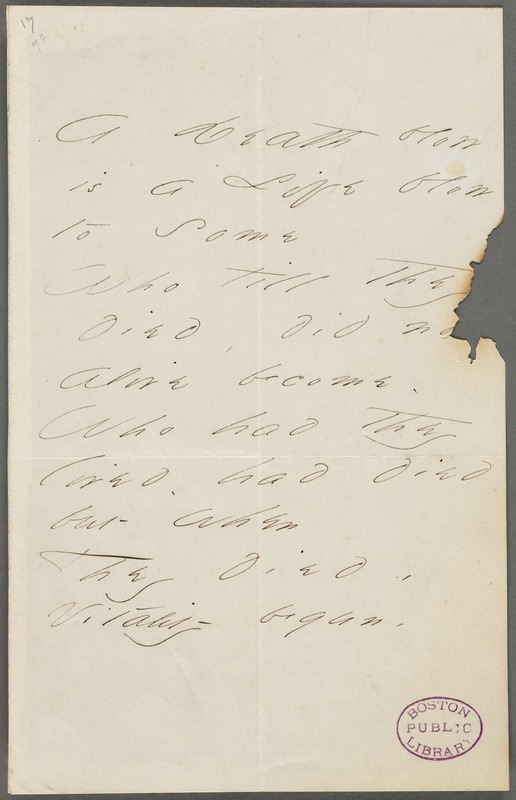 17
A Death blow
is a Life blow
to Some
Who till they
died, did no
alive become.
Who had they
lived. had died
but when
They died.,
Vitality begun.
BOSTON
PUBLIC
LIBRARY